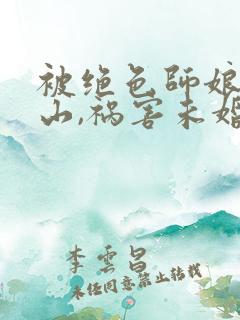 被绝色师娘
山,祸害未婚
李云昌
未经同意禁止转载